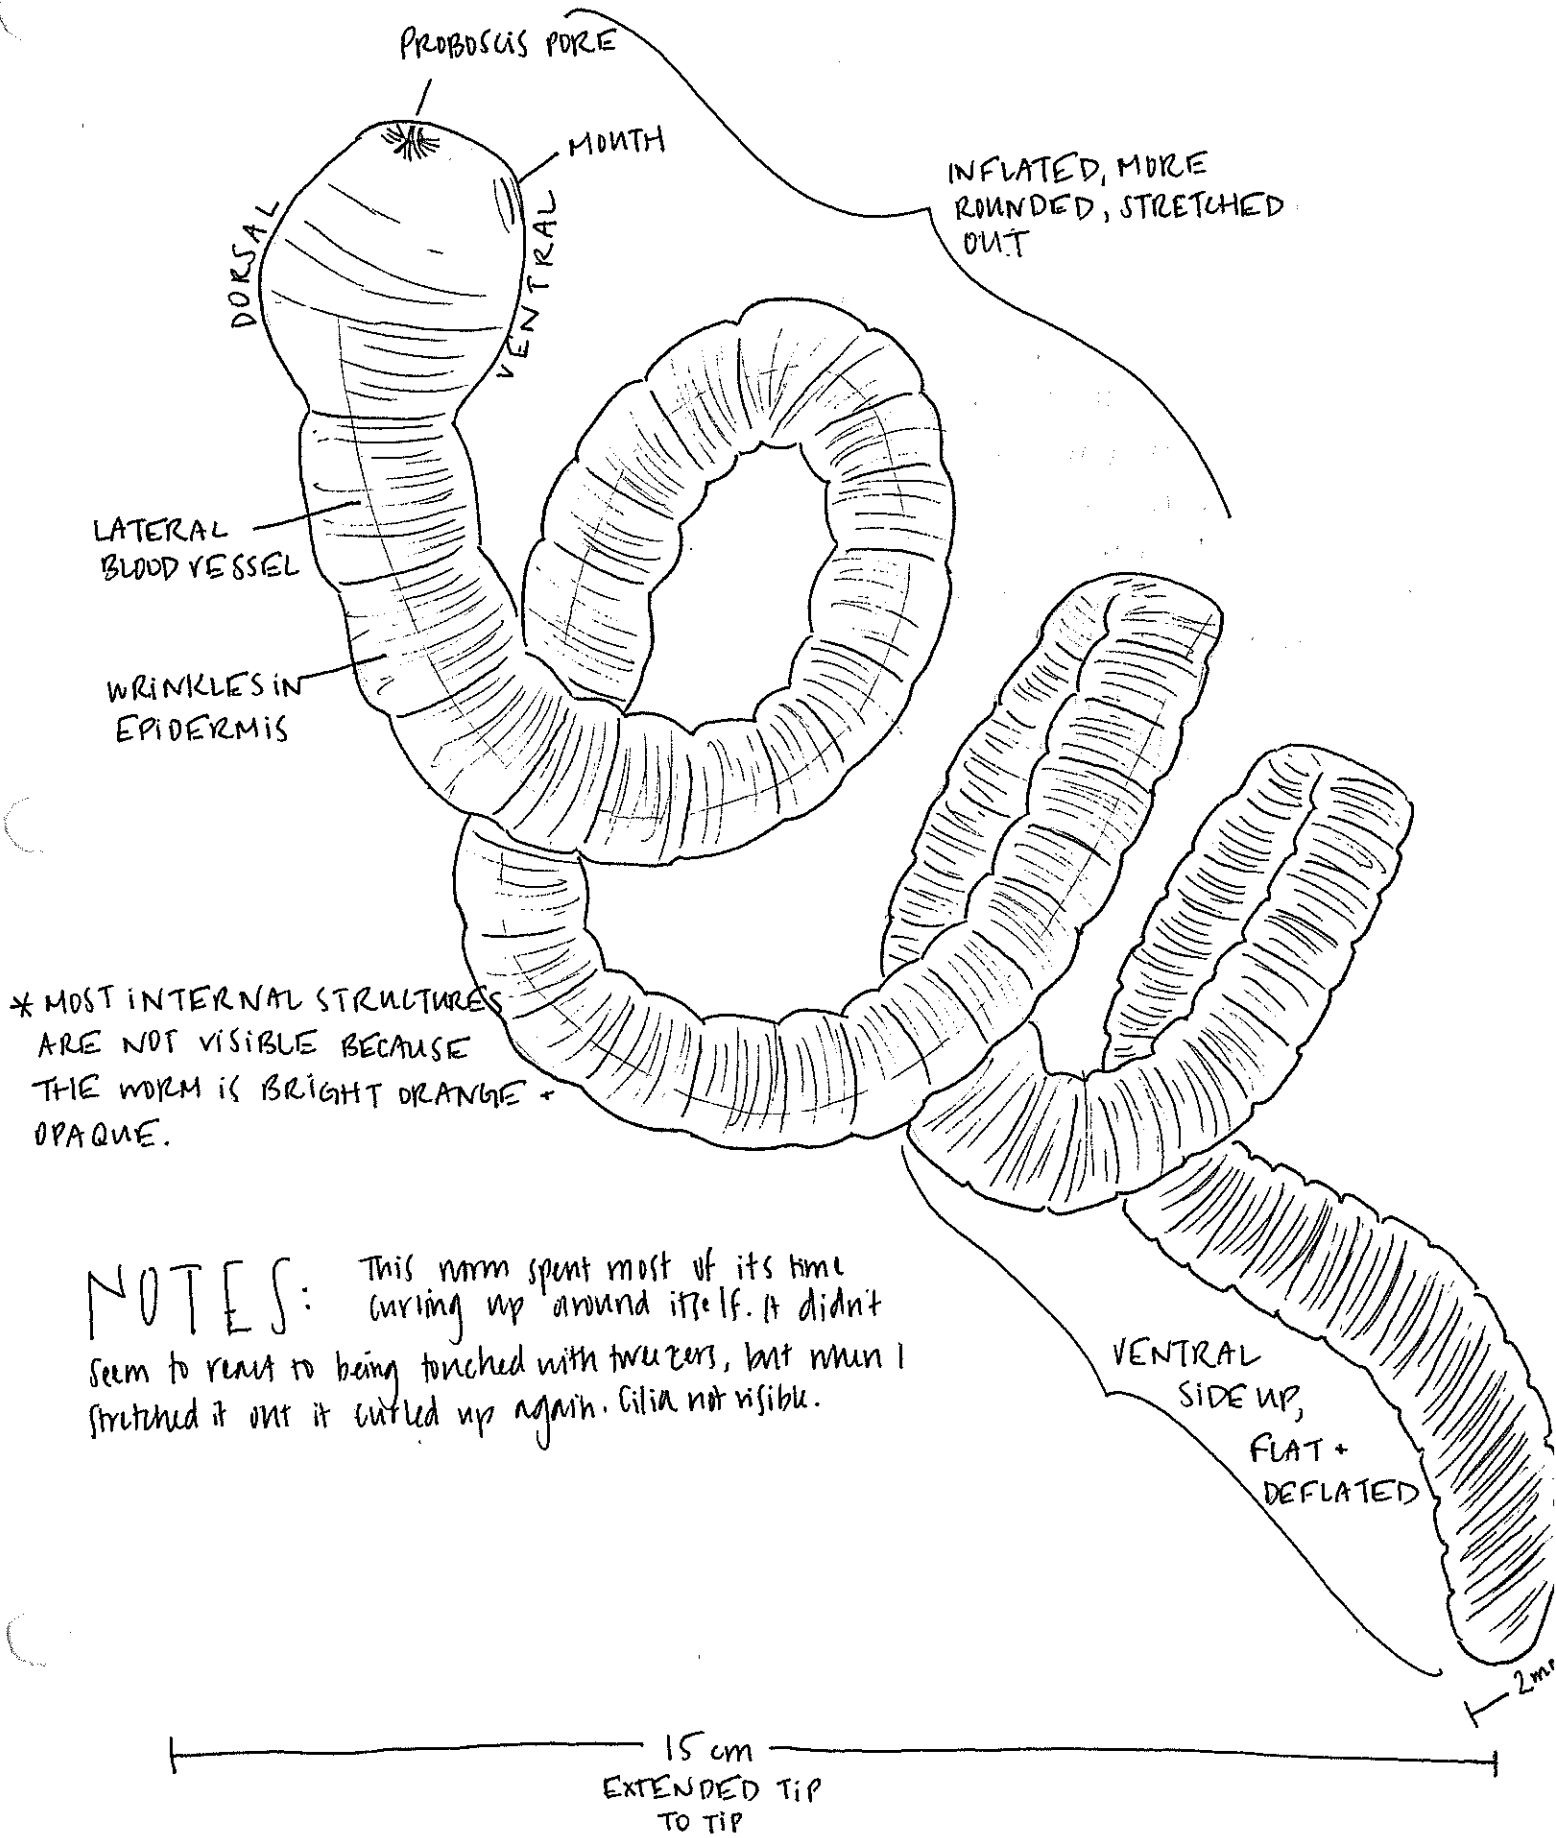 PROBOSCIS PORE
MOUTH
INFLATED, MORE
ROUNDED, STRETCHED
OUT
DORSAL
VENTRAL
LATERAL
BLOOD VESSEL
WRINKLES IN
EPIDERMIS
* MOST INTERNAL STRUCTURES
ARE NOT VISIBLE BECAUSE
THE WORM IS BRIGHT ORANGE +
OPAQUE.
NOTES: This worm spent most of its time
curling up around itself. It didn't
seem to react to being touched with tweezers, but when I
stretched it out it curled up again. Cilia not visible.
VENTRAL
SIDE UP,
FLAT +
DEFLATED
2m
15 cm
EXTENDED TIP
TO TIP